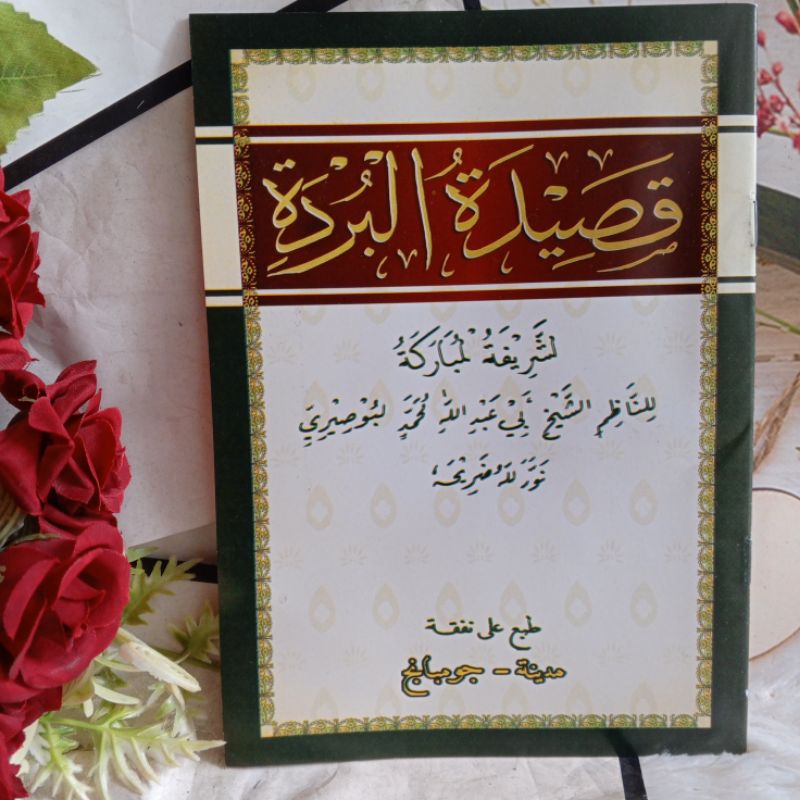 قَصِيْدَةُ الْبُرْدَةِ
لشَّرِيْفَةُ لْمُبَارَكَةُ
لِلنَّاظِمِ الشَّيْخِ أَبِيْ عَبْدِ اللهِ مُحَمَّدٍ لبُوْصِيْرِيّ
نَوَّرَ للهُ ضَرِيْحَهُ
طبع على نفقة
مدينة - جومبانغ